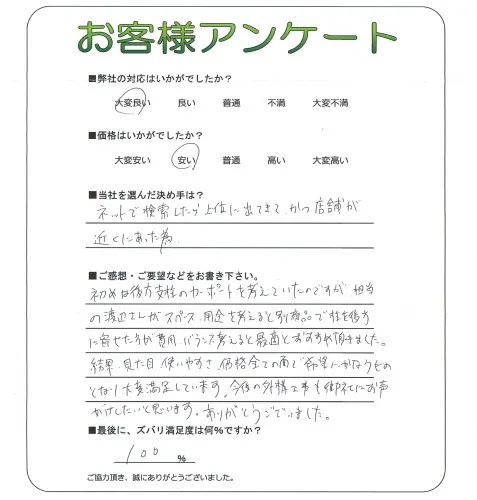 お客様アンケート
■弊社の対応はいかがでしたか？
大変良い 良い 普通 不満 大変不満
■価格はいかがでしたか？
大変安い 安い 普通 高い 大変高い
■当社を選んだ決め手は？
ネットで検索したら上位に出てきて、かつ店舗が
近くにあった為
■ご感想・ご要望などをお書き下さい。
初めは後方支柱のカーポートを考えていたのですが担当
の渡辺さんがスペース、用途を考えると別商品で柱を後方
に寄せた方が費用、バランス考えると最適とおすすめ頂きました。
結果、見た目、使いやすさ、価格全ての面で希望にかなうもの
となり大変満足しています。今後の外構工事も御社にお声
がけしたいと思います。ありがとうございました。
■最後に、ズバリ満足度は何％ですか？
100 ％
ご協力頂き、誠にありがとうございました。